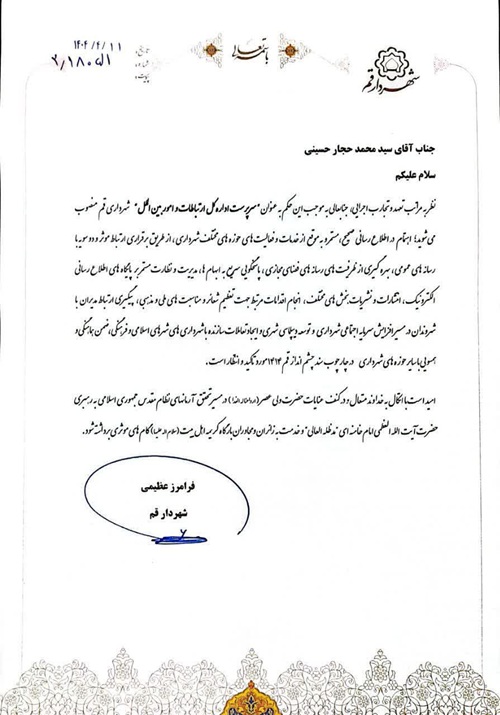 باسمه تعالی
تاریخ: ۱۴۰۴/۴/۱۱
شماره: ۲/۱۸۰۵۱
پیوست:
شهرداری قم
جناب آقای سید محمد حجار حسینی
سلام علیکم
نظر به مراتب تعهد و تجارب اجرایی، جنابعالی به موجب این حکم به عنوان "سرپرست اداره کل ارتباطات و امور بین الملل" شهرداری قم منصوب
می شوید؛ اهتمام در اطلاع رسانی صحیح، مستمر و به موقع از خدمات و فعالیت های حوزه های مختلف شهرداری، از طریق برقراری ارتباط موثر و دو سویه با
رسانه های عمومی، بهره گیری از ظرفیت های رسانه های فضای مجازی، پاسخگویی سریع به ابهام ها، مدیریت و نظارت مستمر بر پایگاه های اطلاع رسانی
الکترونیک، انتشارات و نشریات بخش های مختلف، انجام اقدامات مرتبط جهت تعظیم شعائر و مناسبت های ملی و مذهبی، پیگیری ارتباط مدیران با
شهروندان در مسیر افزایش سرمایه اجتماعی شهرداری و توسعه دیپلماسی شهری و ایجاد تعاملات سازنده با شهرداری های شهرهای اسلامی و فرهنگی، ضمن هماهنگی و
همسویی با سایر حوزه های شهرداری در چارچوب سند چشم انداز قم ۱۴۱۴ مورد تاکید و انتظار است.
امید است با اتکال به خداوند متعال و در کنف عنایات حضرت ولی عصر (ارواحنا له الفدا) در مسیر تحقق آرمانهای نظام مقدس جمهوری اسلامی به رهبری
حضرت آیت الله العظمی امام خامنه ای "مدظله العالی" و خدمت به زائران و مجاوران بارگاه کریمه اهل بیت (سلام الله علیها) گام های موثری برداشته شود.
فرامرز عظیمی
شهردار قم